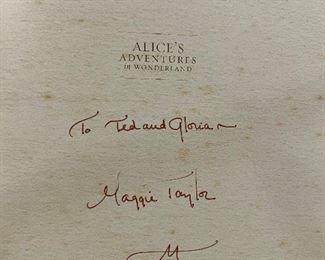 ALICE'S
ADVENTURES
IN WONDERLAND
To Ted and Gloria ~
Maggie Taylor
M